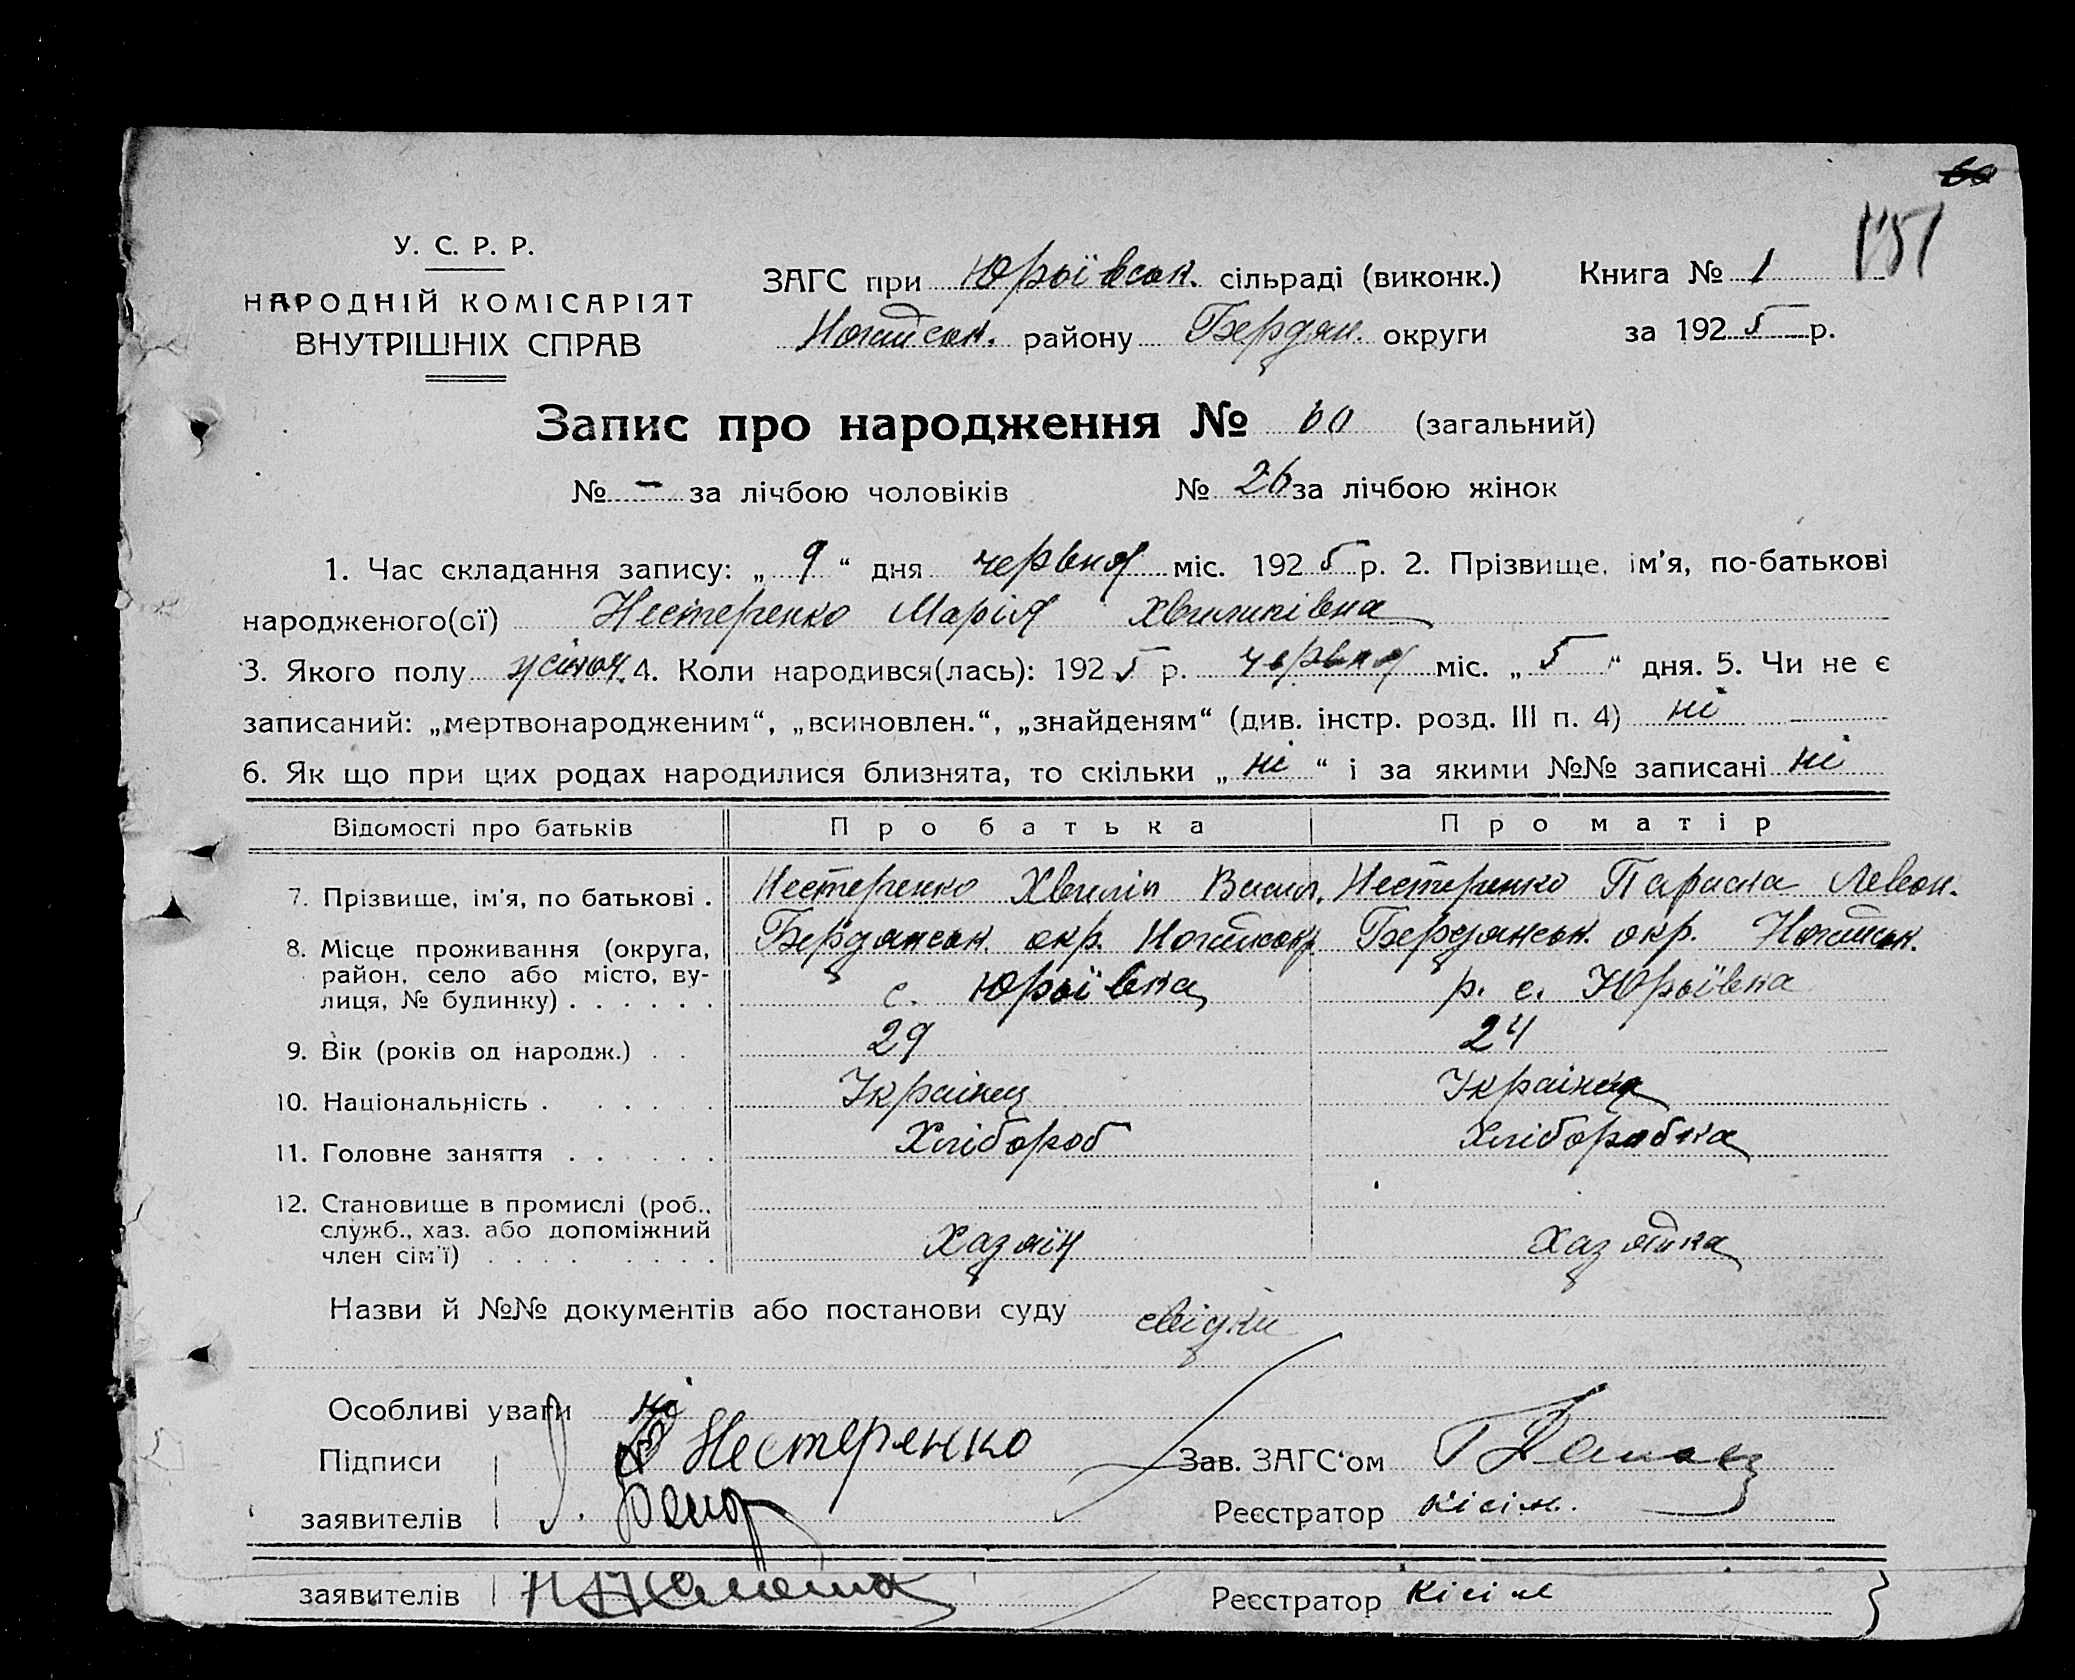 151
У. С. Р. Р.
НАРОДНІЙ КОМІСАРІЯТ
ВНУТРІШНІХ СПРАВ
ЗАГС при Юрьївськ. сільраді (виконк.) Книга № 1
Ногайськ. району Бердян. округи за 1925 р.
Запис про народження № 60 (загальний)
№ - за лічбою чоловіків № 26 за лічбою жінок
1. Час складання запису: „ 9 “ дня червня міс. 1925 р. 2. Прізвище, ім'я, по-батькові
народженого(ої) Нестеренко Марія Хвилипівна
3. Якого полу жіноч. 4. Коли народився(лась): 1925 р. червня міс. „ 5 “ дня. 5. Чи не є
записаний: „мертвонародженим“, „всиновлен.“, „знайденям“ (див. інстр. розд. III п. 4) ні
6. Як що при цих родах народилися близнята, то скільки „ ні “ і за якими №№ записані ні
Відомості про батьків Про батька Про матір
7. Прізвище, ім'я, по батькові . Нестеренко Хвиліп Васил. Нестеренко Параска Левон.
8. Місце проживання (округа, район, село або місто, вулиця, № будинку) . . . . . . Бердянськ. окр. Ногайськ р. с. Юрьївка Бердянськ. окр. Ногайськ. р. с. Юрьївка
9. Вік (років од народж.) . . 29 24
10. Національність . . . . . . Українец Українка
11. Головне заняття . . . . . . Хлібороб Хліборобка
12. Становище в промислі (роб., служб., хаз. або допоміжний член сім'ї) . . . . . . . . Хазяїн Хазяйка
Назви й №№ документів або постанови суду свідки
Особливі уваги ні
Підписи Нестеренко Зав. ЗАГС'ом
заявителів Реєстратор Кісіл.
заявителів Реєстратор Кісіл